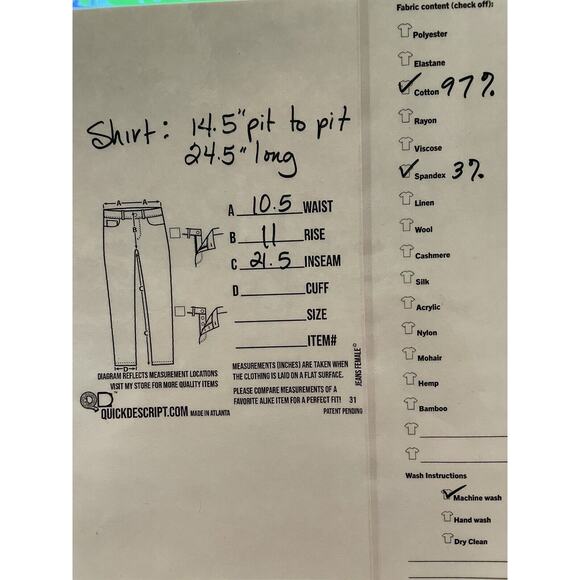 Shirt: 14.5" pit to pit
24.5" long
A
A
B
C
C
D
A 10.5 WAIST
B 11 RISE
C 21.5 INSEAM
D CUFF
SIZE
ITEM#
DIAGRAM REFLECTS MEASUREMENT LOCATIONS
VISIT MY STORE FOR MORE QUALITY ITEMS
QD™
QUICKDESCRIPT.COM MADE IN ATLANTA
MEASUREMENTS (INCHES) ARE TAKEN WHEN
THE CLOTHING IS LAID ON A FLAT SURFACE.
PLEASE COMPARE MEASUREMENTS OF A
FAVORITE ALIKE ITEM FOR A PERFECT FIT! 31
PATENT PENDING
JEANS FEMALE©
Fabric content (check off):
Polyester
Elastane
Cotton 97%
Rayon
Viscose
Spandex 3%
Linen
Wool
Cashmere
Silk
Acrylic
Nylon
Mohair
Hemp
Bamboo
Wash Instructions
Machine wash
Hand wash
Dry Clean